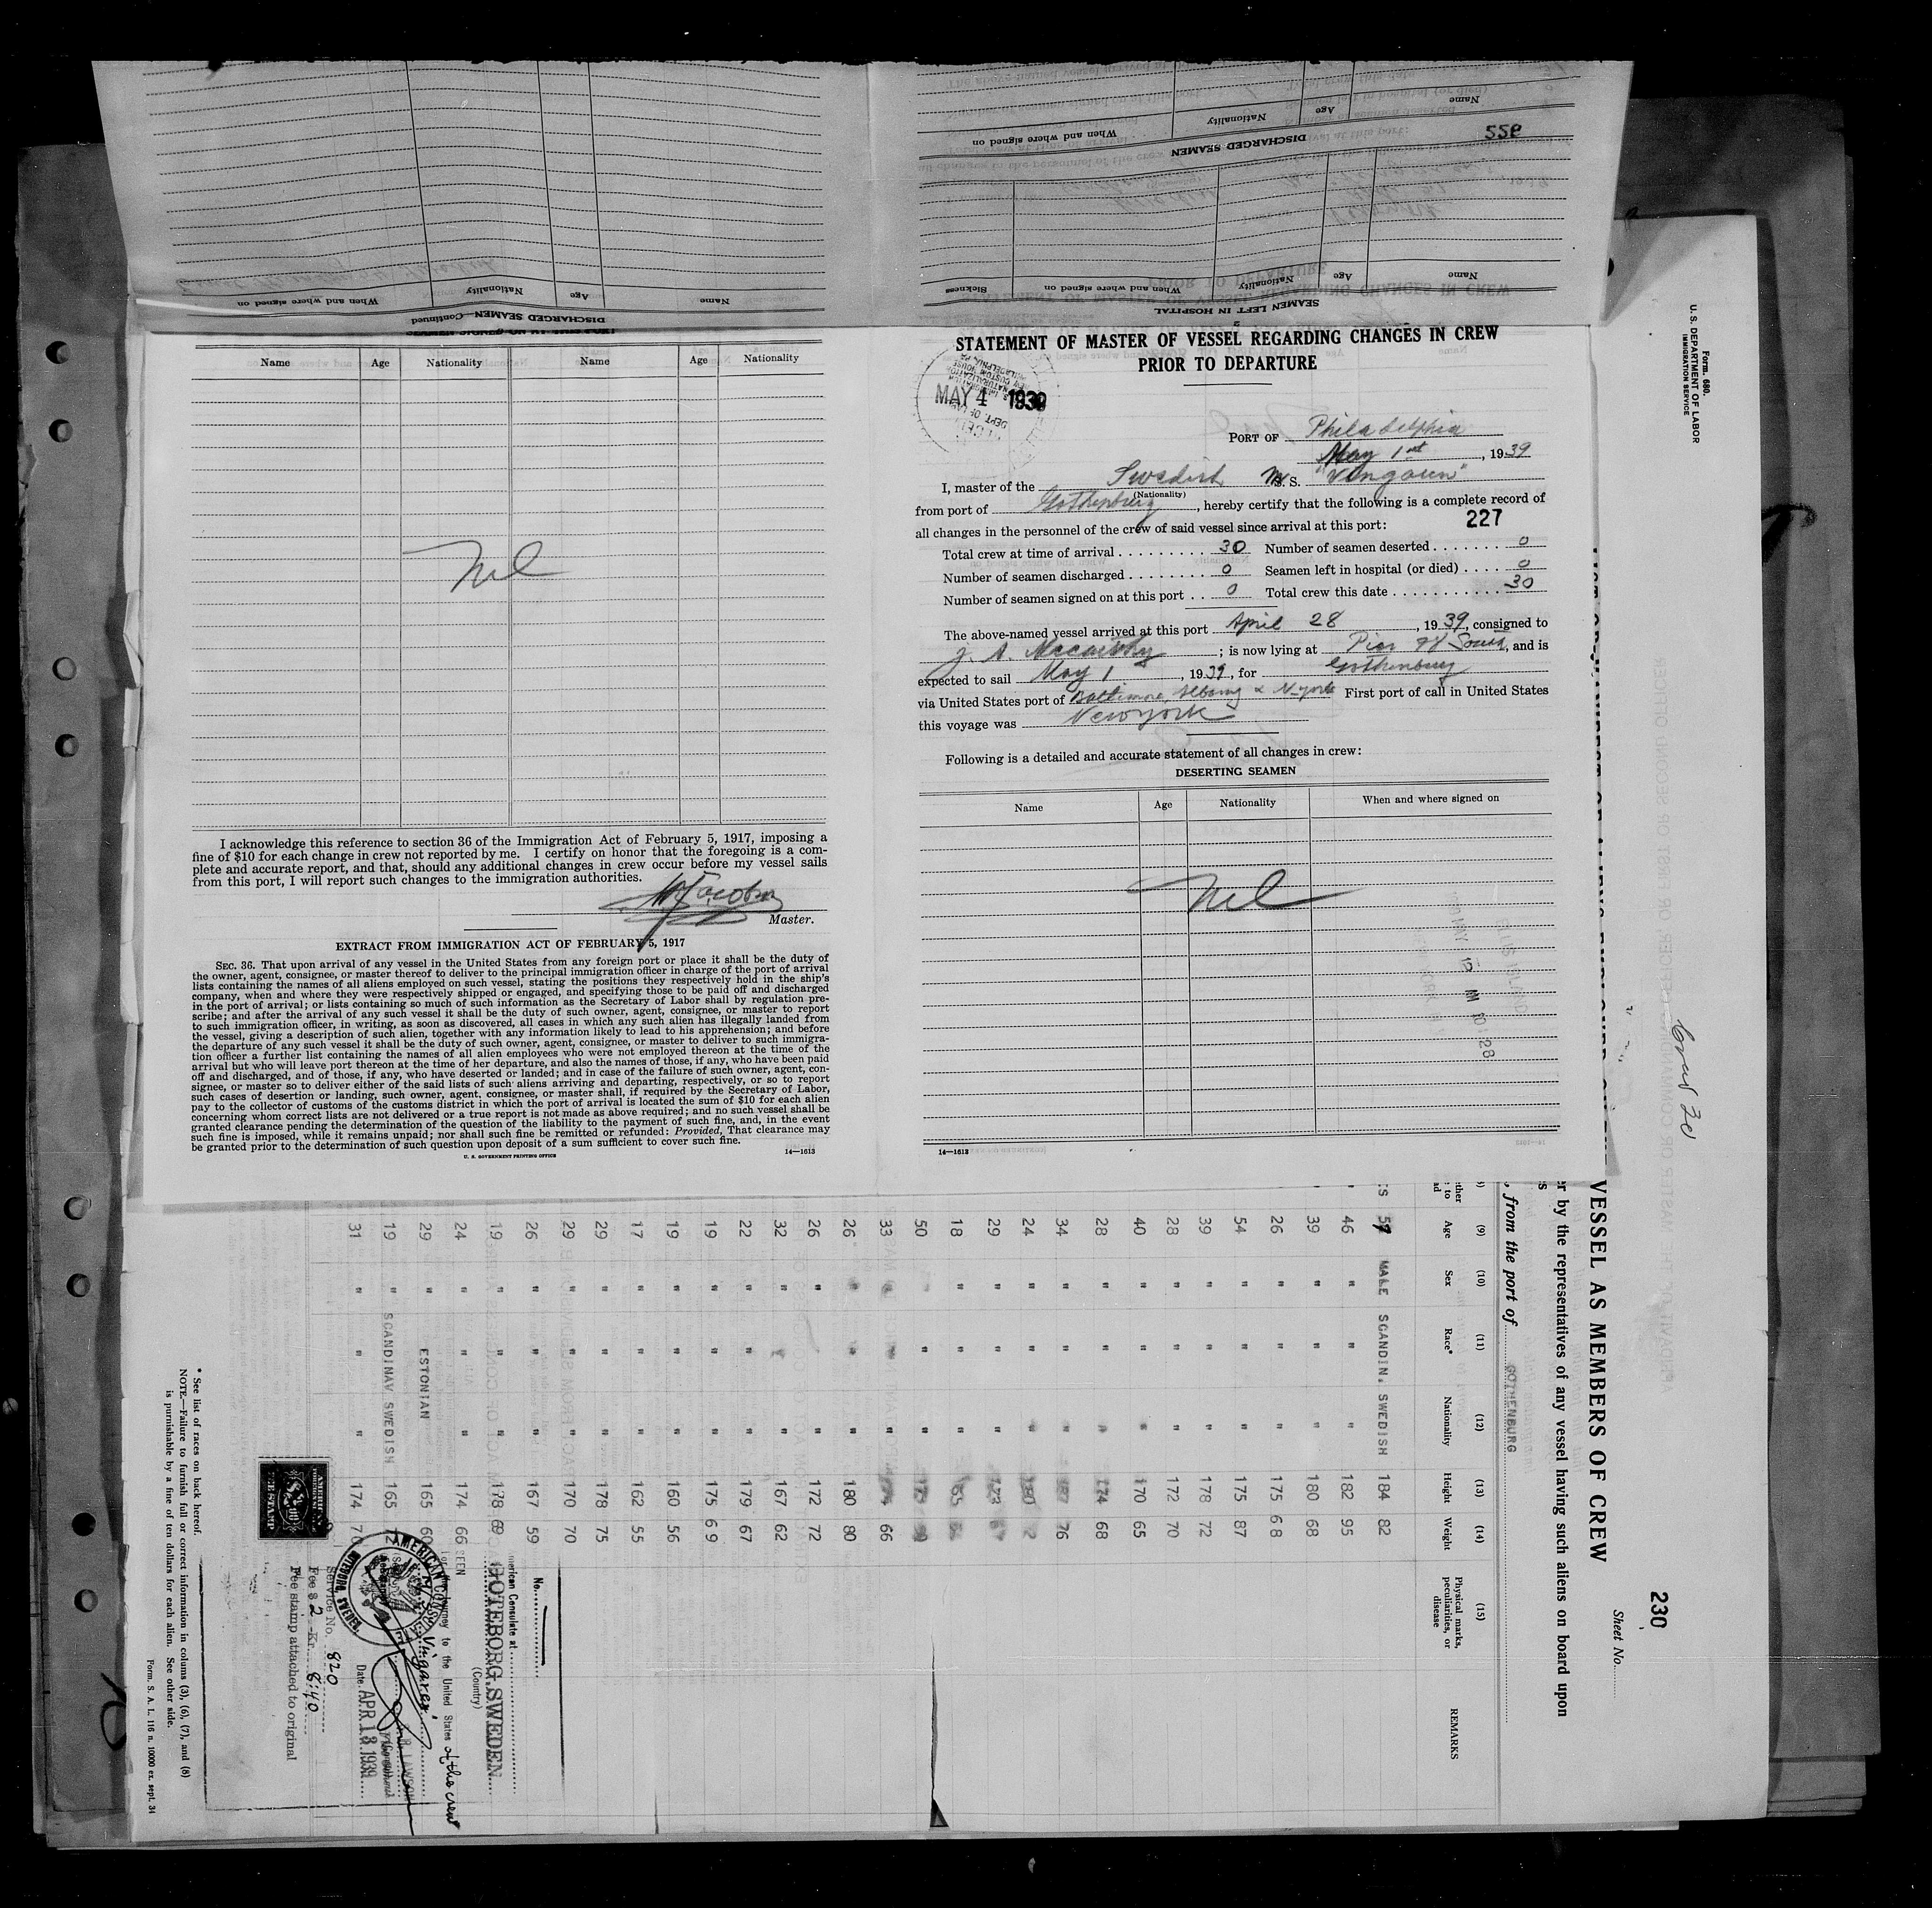 DISCHARGED SEAMEN
Name Age Nationality When and where signed on
SEAMEN LEFT IN HOSPITAL
Name Age Nationality When and where signed on Sickness
DISCHARGED SEAMEN—Continued
Name Age Nationality When and where signed on
Name Age Nationality Name Age Nationality
Nil
I acknowledge this reference to section 36 of the Immigration Act of February 5, 1917, imposing a
fine of $10 for each change in crew not reported by me. I certify on honor that the foregoing is a com-
plete and accurate report, and that, should any additional changes in crew occur before my vessel sails
from this port, I will report such changes to the immigration authorities.
Master.
EXTRACT FROM IMMIGRATION ACT OF FEBRUARY 5, 1917
SEC. 36. That upon arrival of any vessel in the United States from any foreign port or place it shall be the duty of
the owner, agent, consignee, or master thereof to deliver to the principal immigration officer in charge of the port of arrival
lists containing the names of all aliens employed on such vessel, stating the positions they respectively hold in the ship's
company, when and where they were respectively shipped or engaged, and specifying those to be paid off and discharged
in the port of arrival; or lists containing so much of such information as the Secretary of Labor shall by regulation pre-
scribe; and after the arrival of any such vessel it shall be the duty of such owner, agent, consignee, or master to report
to such immigration officer, in writing, as soon as discovered, all cases in which any such alien has illegally landed from
the vessel, giving a description of such alien, together with any information likely to lead to his apprehension; and before
the departure of any such vessel it shall be the duty of such owner, agent, consignee, or master to deliver to such immigra-
tion officer a further list containing the names of all alien employees who were not employed thereon at the time of the
arrival but who will leave port thereon at the time of her departure, and also the names of those, if any, who have been paid
off and discharged, and of those, if any, who have deserted or landed; and in case of the failure of such owner, agent, con-
signee, or master so to deliver either of the said lists of such aliens arriving and departing, respectively, or so to report
such cases of desertion or landing, such owner, agent, consignee, or master shall, if required by the Secretary of Labor,
pay to the collector of customs of the customs district in which the port of arrival is located the sum of $10 for each alien
concerning whom correct lists are not delivered or a true report is not made as above required; and no such vessel shall be
granted clearance pending the determination of the question of the liability to the payment of such fine, and, in the event
such fine is imposed, while it remains unpaid; nor shall such fine be remitted or refunded: Provided, That clearance may
be granted prior to the determination of such question upon deposit of a sum sufficient to cover such fine.
U. S. GOVERNMENT PRINTING OFFICE 14—1613
STATEMENT OF MASTER OF VESSEL REGARDING CHANGES IN CREW
PRIOR TO DEPARTURE
MAY 4 1939
PORT OF Philadelphia
May 1st, 1939
I, master of the Swedish M.S.
(Nationality)
from port of Gothenburg, hereby certify that the following is a complete record of
all changes in the personnel of the crew of said vessel since arrival at this port:
227
Total crew at time of arrival 30 Number of seamen deserted 0
Number of seamen discharged 0 Seamen left in hospital (or died) 0
Number of seamen signed on at this port 0 Total crew this date 30
The above-named vessel arrived at this port April 28, 1939, consigned to
J. A. McCarthy; is now lying at Pier 98 South, and is
expected to sail May 1, 1939, for Gothenburg
via United States port of Baltimore, Albany & N-york First port of call in United States
this voyage was New york
Following is a detailed and accurate statement of all changes in crew:
DESERTING SEAMEN
Name Age Nationality When and where signed on
Nil
14—1613
Form 680.
U. S. DEPARTMENT OF LABOR
IMMIGRATION SERVICE
230
Sheet No.
VESSEL AS MEMBERS OF CREW
er by the representatives of any vessel having such aliens on board upon
, from the port of GOTHENBURG
(9) Age (10) Sex (11) Race* (12) Nationality (13) Height (14) Weight (15) Physical marks, peculiarities, or disease REMARKS
57 MALE SCANDIN. SWEDISH 184 82
46 " " " 182 95
39 " " " 180 68
26 " " " 175 68
54 " " " 175 87
39 " " " 178 72
28 " " " 172 70
40 " " " 170 65
28 " " " 174 68
34 " " " 76
24 " " "
29 " " "
18 " " "
50 " "
33 " " 66
26 " " " 180 80
26 " " 172 72
32 " " " 167 62
22 " " " 179 67
19 " " " 175 69
19 " " " 160 56
17 " " " 162 55
29 " " " 178 75
29 " " " 170 70
26 " " " 167 59
19 " " " 178 69
24 " " " 174 66
29 " ESTONIAN " 165 60
19 " SCANDINAV SWEDISH 165
31 " " " 174 70
No.
American Consulate at
GOTEBORG, SWEDEN.
(Country)
SEEN
journey to the United States of the crew
AMERICAN CONSULATE
GOTEBORG, SWEDEN
Date APR 18 1939
Service No. 820
Fee $ 2 Kr. 8:40
Fee stamp attached to original
AMERICAN
FEE STAMP
* See list of races on back hereof.
NOTE.—Failure to furnish full or correct information in colums (3), (6), (7), and (8)
is punishable by a fine of ten dollars for each alien. See other side.
Form. S. A. L. 116 n. 10000 ex. sept. 34